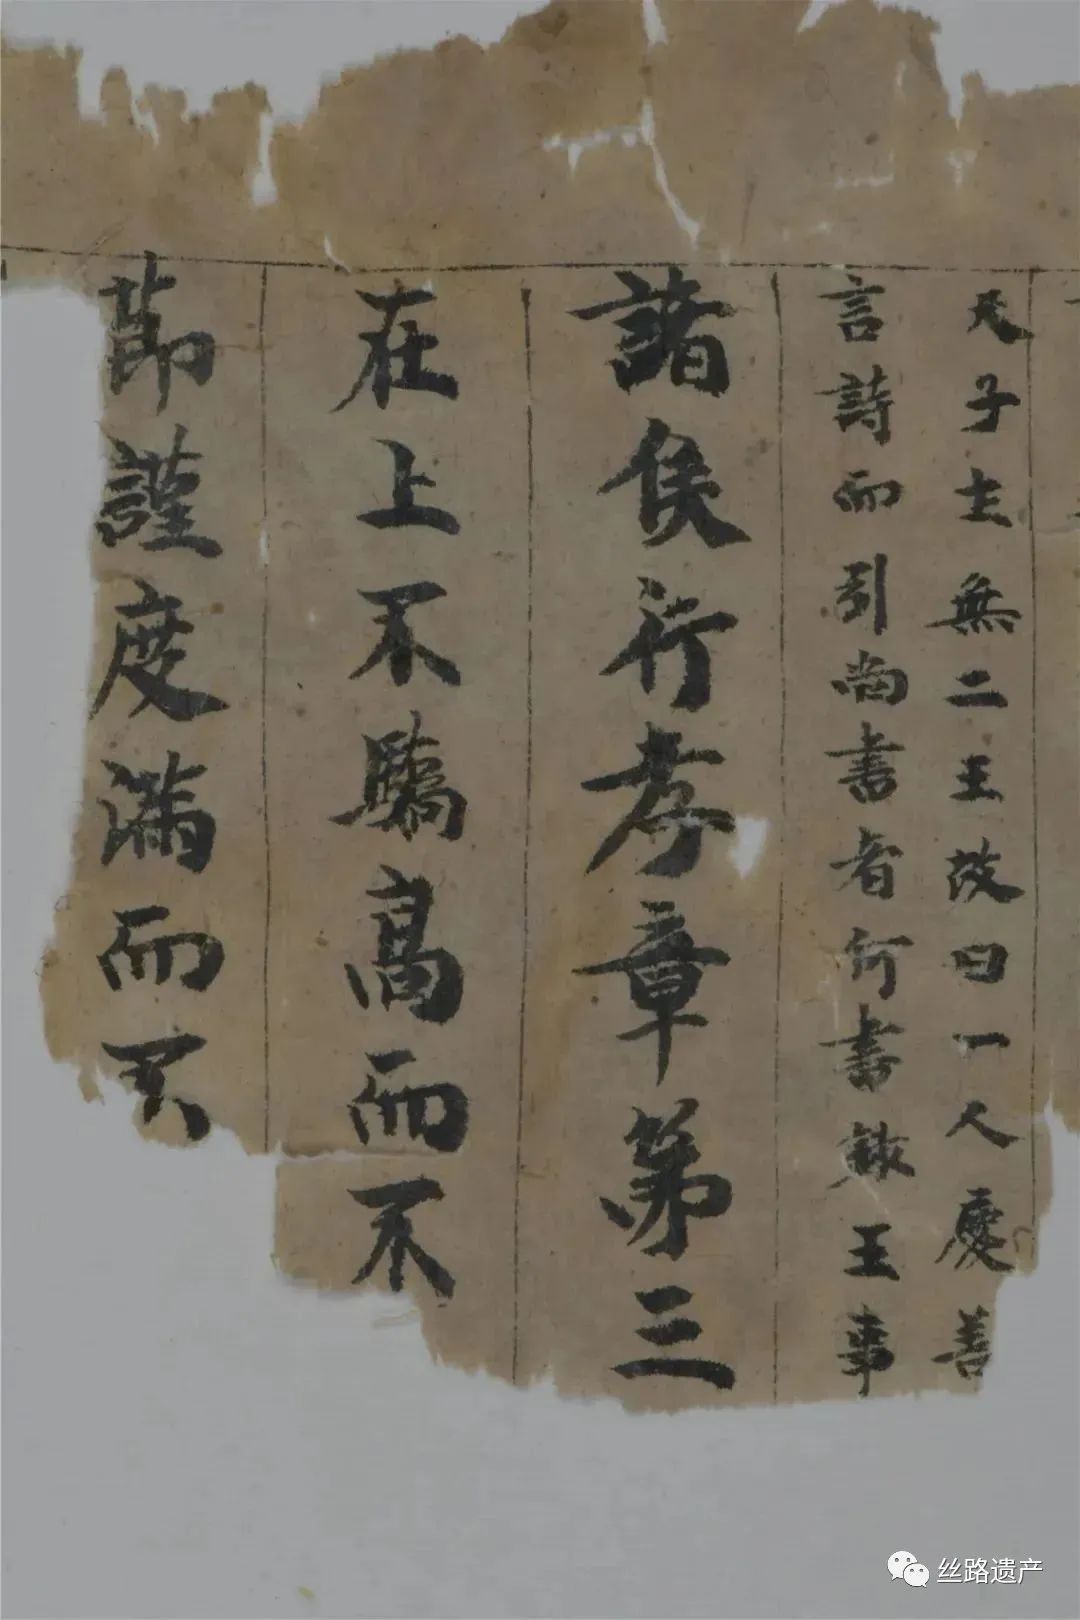 天子土無二王故曰一人慶善
言詩而引尚書者何書錄王事
諸侯行孝章第三
在上不驕高而不
節謹度滿而不
丝路遗产